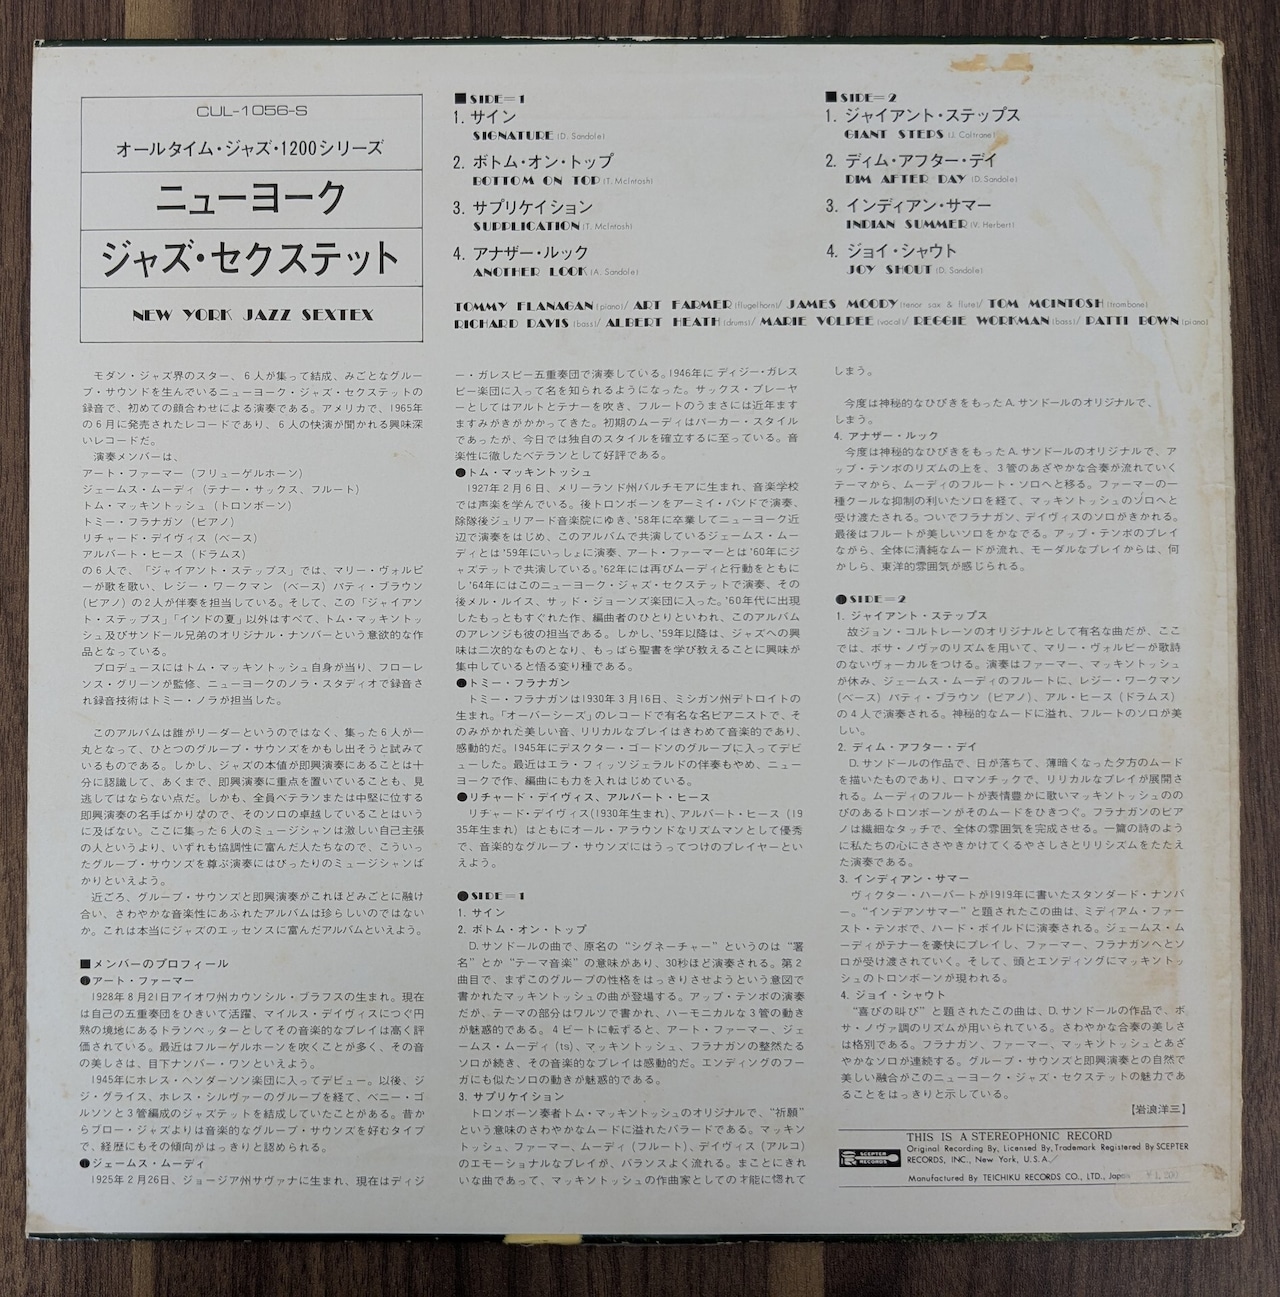 CUL-1056-S
オールタイム・ジャズ・1200シリーズ
ニューヨーク
ジャズ・セクステット
NEW YORK JAZZ SEXTEX
■SIDE=1
1. サイン
SIGNATURE (D. Sandole)
2. ボトム・オン・トップ
BOTTOM ON TOP (T. McIntosh)
3. サプリケイション
SUPPLICATION (T. McIntosh)
4. アナザー・ルック
ANOTHER LOOK (A. Sandole)
■SIDE=2
1. ジャイアント・ステップス
GIANT STEPS (J. Coltrane)
2. ディム・アフター・デイ
DIM AFTER DAY (D. Sandole)
3. インディアン・サマー
INDIAN SUMMER (V. Herbert)
4. ジョイ・シャウト
JOY SHOUT (D. Sandole)
TOMMY FLANAGAN (piano)/ ART FARMER (flugelhorn)/ JAMES MOODY (tenor sax & flute)/ TOM MCINTOSH (trombone)
RICHARD DAVIS (bass)/ ALBERT HEATH (drums)/ MARIE VOLPEE (vocal)/ REGGIE WORKMAN (bass)/ PATTI BOWN (piano)
モダン・ジャズ界のスター、6人が集って結成、みごとなグルー
プ・サウンドを生んでいるニューヨーク・ジャズ・セクステットの
録音で、初めての顔合わせによる演奏である。アメリカで、1965年
の6月に発売されたレコードであり、6人の快演が聞かれる興味深
いレコードだ。
演奏メンバーは、
アート・ファーマー（フリューゲルホーン）
ジェームス・ムーディ（テナー・サックス、フルート）
トム・マッキントッシュ（トロンボーン）
トミー・フラナガン（ピアノ）
リチャード・デイヴィス（ベース）
アルバート・ヒース（ドラムス）
の6人で、「ジャイアント・ステップス」では、マリー・ヴォルピ
ーが歌を歌い、レジー・ワークマン（ベース）パティ・ブラウン
（ピアノ）の2人が伴奏を担当している。そして、この「ジャイアン
ト・ステップス」「インドの夏」以外はすべて、トム・マッキントッ
シュ及びサンドール兄弟のオリジナル・ナンバーという意欲的な作
品となっている。
プロデュースにはトム・マッキントッシュ自身が当り、フローレ
ンス・グリーンが監修、ニューヨークのノラ・スタディオで録音さ
れ録音技術はトミー・ノラが担当した。
このアルバムは誰がリーダーというのではなく、集った6人が一
丸となって、ひとつのグループ・サウンズをかもし出そうと試みて
いるものである。しかし、ジャズの本値が即興演奏にあることは十
分に認識して、あくまで、即興演奏に重点を置いていることも、見
逃してはならない点だ。しかも、全員ベテランまたは中堅に位する
即興演奏の名手ばかりなので、そのソロの卓越していることはいう
に及ばない。ここに集った6人のミュージシャンは激しい自己主張
の人というより、いずれも協調性に富んだ人たちなので、こういっ
たグループ・サウンズを尊ぶ演奏にはぴったりのミュージシャンば
かりといえよう。
近ごろ、グループ・サウンズと即興演奏がこれほどみごとに融け
合い、さわやかな音楽性にあふれたアルバムは珍らしいのではない
か。これは本当にジャズのエッセンスに富んだアルバムといえよう。
■メンバーのプロフィール
●アート・ファーマー
1928年8月21日アイオワ州カウンシル・ブラフスの生まれ。現在
は自己の五重奏団をひきいて活躍、マイルス・デイヴィスにつぐ円
熟の境地にあるトランペッターとしてその音楽的なプレイは高く評
価されている。最近はフルーゲルホーンを吹くことが多く、その音
の美しさは、目下ナンバー・ワンといえよう。
1945年にホレス・ヘンダーソン楽団に入ってデビュー。以後、ジ
ジ・グライス、ホレス・シルヴァーのグループを経て、ベニー・ゴ
ルソンと3管編成のジャズテットを結成していたことがある。昔か
らブロー・ジャズよりは音楽的なグループ・サウンズを好むタイプ
で、経歴にもその傾向がはっきりと認められる。
●ジェームス・ムーディ
1925年2月26日、ジョージア州サヴァナに生まれ、現在はディジ
ー・ガレスピー五重奏団で演奏している。1946年に ディジー・ガレス
ピー楽団に入って名を知られるようになった。サックス・プレーヤ
ーとしてはアルトとテナーを吹き、フルートのうまさには近年ます
ますみがきがかかってきた。初期のムーディはパーカー・スタイル
であったが、今日では独自のスタイルを確立するに至っている。音
楽性に徹したベテランとして好評である。
●トム・マッキントッシュ
1927年2月6日、メリーランド州バルチモアに生まれ、音楽学校
では声楽を学んでいる。後トロンボーンをアーミイ・バンドで演奏、
除隊後ジュリアード音楽院にゆき、'58年に卒業してニューヨーク近
辺で演奏をはじめ、このアルバムで共演しているジェームス・ムー
ディとは'59年にいっしょに演奏、アート・ファーマーとは'60年にジ
ャズテットで共演している。'62年には再びムーディと行動をともに
し'64年にはこのニューヨーク・ジャズ・セクステットで演奏、その
後メル・ルイス、サッド・ジョーンズ楽団に入った。'60年代に出現
したもっともすぐれた作、編曲者のひとりといわれ、このアルバム
のアレンジも彼の担当である。しかし、'59年以降は、ジャズへの興
味は二次的なものとなり、もっぱら聖書を学び教えることに興味が
集中していると悟る変り種である。
●トミー・フラナガン
トミー・フラナガンは1930年3月16日、ミシガン州デトロイトの
生まれ。「オーバーシーズ」のレコードで有名な名ピアニストで、そ
のみがかれた美しい音、リリカルなプレイはきわめて音楽的であり、
感動的だ。1945年にデスクター・ゴードンのグループに入ってデビ
ューした。最近はエラ・フィッツジェラルドの伴奏もやめ、ニュー
ヨークで作、編曲にも力を入れはじめている。
●リチャード・デイヴィス、アルバート・ヒース
リチャード・デイヴィス(1930年生まれ)、アルバート・ヒース（19
35年生まれ）はともにオール・アラウンドなリズムマンとして優秀
で、音楽的なグループ・サウンズにはうってつけのプレイヤーとい
えよう。
●SIDE=1
1. サイン
2. ボトム・オン・トップ
D. サンドールの曲で、原名の“シグネーチャー”というのは“署
名”とか“テーマ音楽”の意味があり、30秒ほど演奏される。第2
曲目で、まずこのグループの性格をはっきりさせようという意図で
書かれたマッキントッシュの曲が登場する。アップ・テンポの演奏
だが、テーマの部分はワルツで書かれ、ハーモニカルな3管の動き
が魅惑的である。4ビートに転ずると、アート・ファーマー、ジェ
ームス・ムーディ(ts)、マッキントッシュ、フラナガンの整然たる
ソロが続き、その音楽的なプレイは感動的だ。エンディングのフー
ガにも似たソロの動きが魅惑的である。
3. サプリケイション
トロンボーン奏者トム・マッキントッシュのオリジナルで、“祈願”
という意味のさわやかなムードに溢れたバラードである。マッキン
トッシュ、ファーマー、ムーディ（フルート）、デイヴィス（アルコ）
のエモーショナルなプレイが、バランスよく流れる。まことにきれ
いな曲であって、マッキントッシュの作曲家としての才能に惚れて
しまう。
今度は神秘的なひびきをもったA. サンドールのオリジナルで、
しまう。
4. アナザー・ルック
今度は神秘的なひびきをもったA. サンドールのオリジナルで、ア
ップ・テンポのリズムの上を、3管のあざやかな合奏が流れていく
テーマから、ムーディのフルート・ソロへと移る。ファーマーの一
種クールな抑制の利いたソロを経て、マッキントッシュのソロへと
受け渡たされる。ついでフラナガン、デイヴィスのソロがきかれる。
最後はフルートが美しいソロをかなでる。アップ・テンポのプレイ
ながら、全体に清純なムードが流れ、モーダルなプレイからは、何
かしら、東洋的雰囲気が感じられる。
●SIDE=2
1. ジャイアント・ステップス
故ジョン・コルトレーンのオリジナルとして有名な曲だが、ここ
では、ボサ・ノヴァのリズムを用いて、マリー・ヴォルピーが歌詩
のないヴォーカルをつける。演奏はファーマー、マッキントッシュ
が休み、ジェームス・ムーディのフルートに、レジー・ワークマン
（ベース）パティ・ブラウン（ピアノ）、アル・ヒース（ドラムス）
の4人で演奏される。神秘的なムードに溢れ、フルートのソロが美
しい。
2. ディム・アフター・デイ
D. サンドールの作品で、日が落ちて、薄暗くなった夕方のムード
を描いたものであり、ロマンチックで、リリカルなプレイが展開さ
れる。ムーディのフルートが表情豊かに歌いマッキントッシュのの
びのあるトロンボーンがそのムードをひきつぐ。フラナガンのピア
ノは繊細なタッチで、全体の雰囲気を完成させる。一篇の詩のよう
に私たちの心にささやきかけてくるやさしさとリリシズムをたたえ
た演奏である。
3. インディアン・サマー
ヴィクター・ハーバートが1919年に書いたスタンダード・ナンバ
ー。“インデアンサマー”と題されたこの曲は、ミディアム・ファー
スト・テンポで、ハード・ボイルドに演奏される。ジェームス・ム
ーディがテナーを豪快にプレイし、ファーマー、フラナガンへとソ
ロが受け渡されていく。そして、頭とエンディングにマッキントッ
シュのトロンボーンが現われる。
4. ジョイ・シャウト
“喜びの叫び”と題されたこの曲は、D. サンドールの作品で、ボ
サ・ノヴァ調のリズムが用いられている。さわやかな合奏の美しさ
は格別である。フラナガン、ファーマー、マッキントッシュとあざ
やかなソロが連続する。グループ・サウンズと即興演奏との自然で
美しい融合がこのニューヨーク・ジャズ・セクステットの魅力であ
ることをはっきりと示している。
【岩浪洋三】
THIS IS A STEREOPHONIC RECORD
SCEPTER RECORDS
Original Recording By, Licensed By, Trademark Registered By SCEPTER
RECORDS, INC., New York, U. S. A.／
Manufactured By TEICHIKU RECORDS CO., LTD., Japan